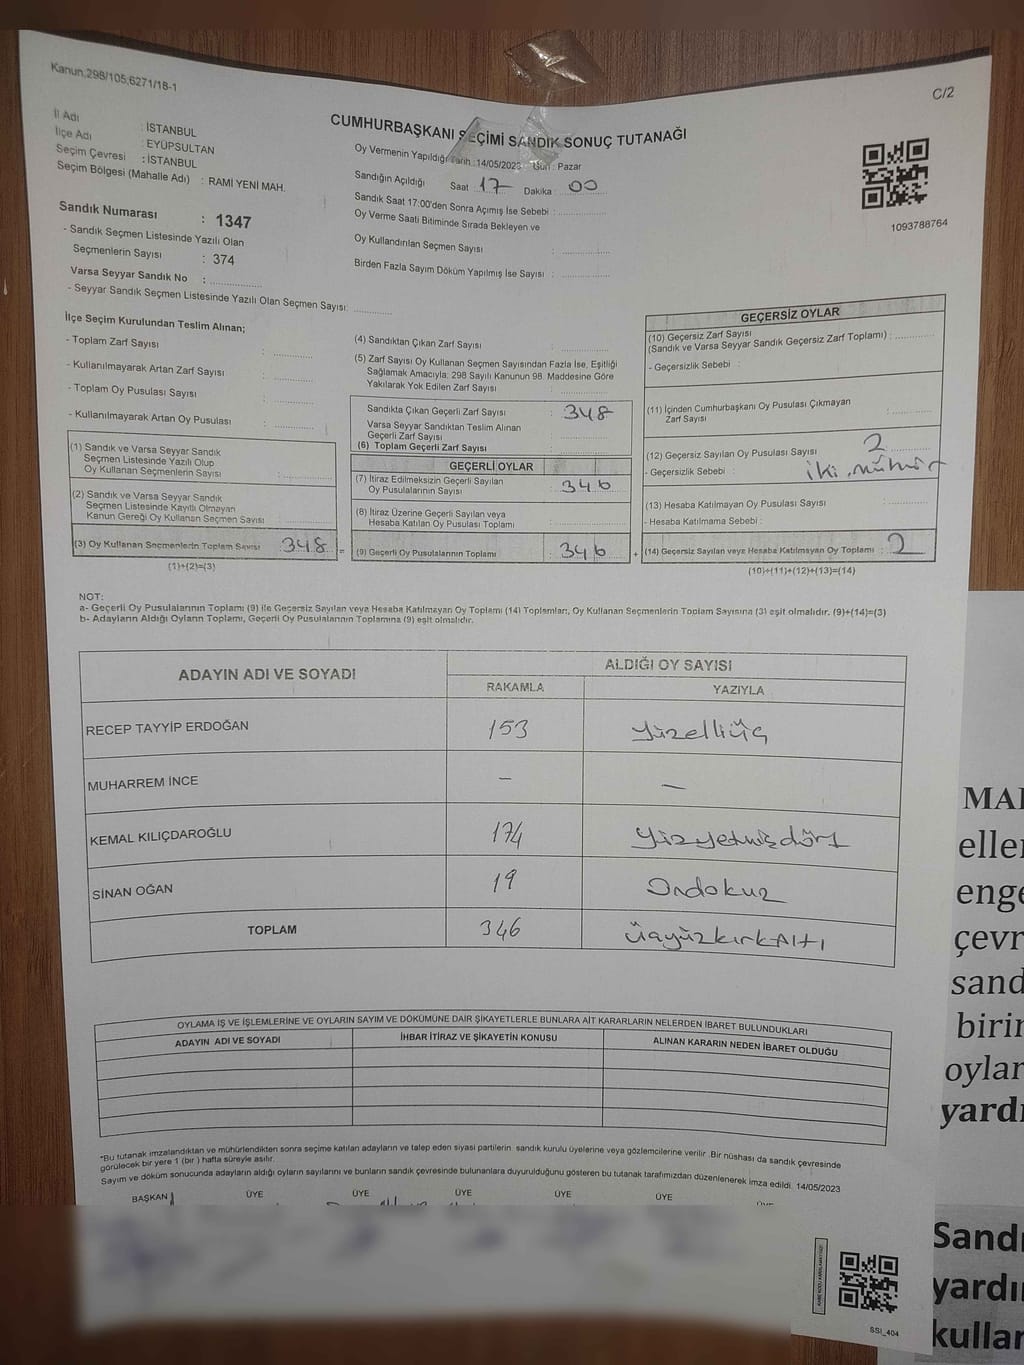 Kanun;298/105;6271/18-1
C/2
İl Adı : İSTANBUL
İlçe Adı : EYÜPSULTAN
Seçim Çevresi : İSTANBUL
Seçim Bölgesi (Mahalle Adı) : RAMİ YENİ MAH.
Sandık Numarası : 1347
- Sandık Seçmen Listesinde Yazılı Olan
Seçmenlerin Sayısı : 374
Varsa Seyyar Sandık No :
- Seyyar Sandık Seçmen Listesinde Yazılı Olan Seçmen Sayısı:
CUMHURBAŞKANI SEÇİMİ SANDIK SONUÇ TUTANAĞI
Oy Vermenin Yapıldığı Tarih :14/05/2023 Gün : Pazar
Sandığın Açıldığı Saat : 17 Dakika : 00
Sandık Saat 17:00'den Sonra Açımış İse Sebebi :
Oy Verme Saati Bitiminde Sırada Bekleyen ve
Oy Kullandırılan Seçmen Sayısı :
Birden Fazla Sayım Döküm Yapılmış İse Sayısı :
1093788764
İlçe Seçim Kurulundan Teslim Alınan;
- Toplam Zarf Sayısı :
- Kullanılmayarak Artan Zarf Sayısı :
- Toplam Oy Pusulası Sayısı :
- Kullanılmayarak Artan Oy Pusulası :
(1) Sandık ve Varsa Seyyar Sandık
Seçmen Listesinde Yazılı Olup
Oy Kullanan Seçmenlerin Sayısı :
(2) Sandık ve Varsa Seyyar Sandık
Seçmen Listesinde Kayıtlı Olmayan
Kanun Gereği Oy Kullanan Seçmen Sayısı :
(3) Oy Kullanan Seçmenlerin Toplam Sayısı : 348 =
(1)+(2)=(3)
(4) Sandıktan Çıkan Zarf Sayısı :
(5) Zarf Sayısı Oy Kullanan Seçmen Sayısından Fazla İse, Eşitliği
Sağlamak Amacıyla; 298 Sayılı Kanunun 98. Maddesine Göre
Yakılarak Yok Edilen Zarf Sayısı :
Sandıkta Çıkan Geçerli Zarf Sayısı : 348
Varsa Seyyar Sandıktan Teslim Alınan
Geçerli Zarf Sayısı :
(6) Toplam Geçerli Zarf Sayısı
GEÇERLİ OYLAR
(7) İtiraz Edilmeksizin Geçerli Sayılan
Oy Pusulalarının Sayısı : 346
(8) İtiraz Üzerine Geçerli Sayılan veya
Hesaba Katılan Oy Pusulası Toplamı :
(9) Geçerli Oy Pusulalarının Toplamı : 346 +
GEÇERSİZ OYLAR
(10) Geçersiz Zarf Sayısı
(Sandık ve Varsa Seyyar Sandık Geçersiz Zarf Toplamı) :
- Geçersizlik Sebebi :
(11) İçinden Cumhurbaşkanı Oy Pusulası Çıkmayan
Zarf Sayısı :
(12) Geçersiz Sayılan Oy Pusulası Sayısı : 2
- Geçersizlik Sebebi : iki mühür
(13) Hesaba Katılmayan Oy Pusulası Sayısı :
- Hesaba Katılmama Sebebi :
(14) Geçersiz Sayılan veya Hesaba Katılmayan Oy Toplamı : 2
(10)+(11)+(12)+(13)=(14)
NOT:
a- Geçerli Oy Pusulalarının Toplamı (9) ile Geçersiz Sayılan veya Hesaba Katılmayan Oy Toplamı (14) Toplamları, Oy Kullanan Seçmenlerin Toplam Sayısına (3) eşit olmalıdır. (9)+(14)=(3)
b- Adayların Aldığı Oyların Toplamı, Geçerli Oy Pusulalarının Toplamına (9) eşit olmalıdır.
ADAYIN ADI VE SOYADI ALDIĞI OY SAYISI
RAKAMLA YAZIYLA
RECEP TAYYİP ERDOĞAN 153 yüzelliüç
MUHARREM İNCE – –
KEMAL KILIÇDAROĞLU 174 yüzyetmişdört
SİNAN OĞAN 19 Ondokuz
TOPLAM 346 üçyüzkırkAltı
OYLAMA İŞ VE İŞLEMLERİNE VE OYLARIN SAYIM VE DÖKÜMÜNE DAİR ŞİKAYETLERLE BUNLARA AİT KARARLARIN NELERDEN İBARET BULUNDUKLARI
ADAYIN ADI VE SOYADI İHBAR İTİRAZ VE ŞİKAYETİN KONUSU ALINAN KARARIN NEDEN İBARET OLDUĞU
*Bu tutanak imzalandıktan ve mühürlendikten sonra seçime katılan adayların ve talep eden siyasi partilerin sandık kurulu üyelerine veya gözlemcilerine verilir. Bir nüshası da sandık çevresinde
görülecek bir yere 1 (bir) hafta süreyle asılır.
Sayım ve döküm sonucunda adayların aldığı oyların sayılarını ve bunların sandık çevresinde bulunanlara duyurulduğunu gösteren bu tutanak tarafımızdan düzenlenerek imza edildi. 14/05/2023
BAŞKAN ÜYE ÜYE ÜYE ÜYE ÜYE
SSI_404
MAI
eller
enge
çevr
sand
birir
oylar
yardı
Sandı
yardır
kullar